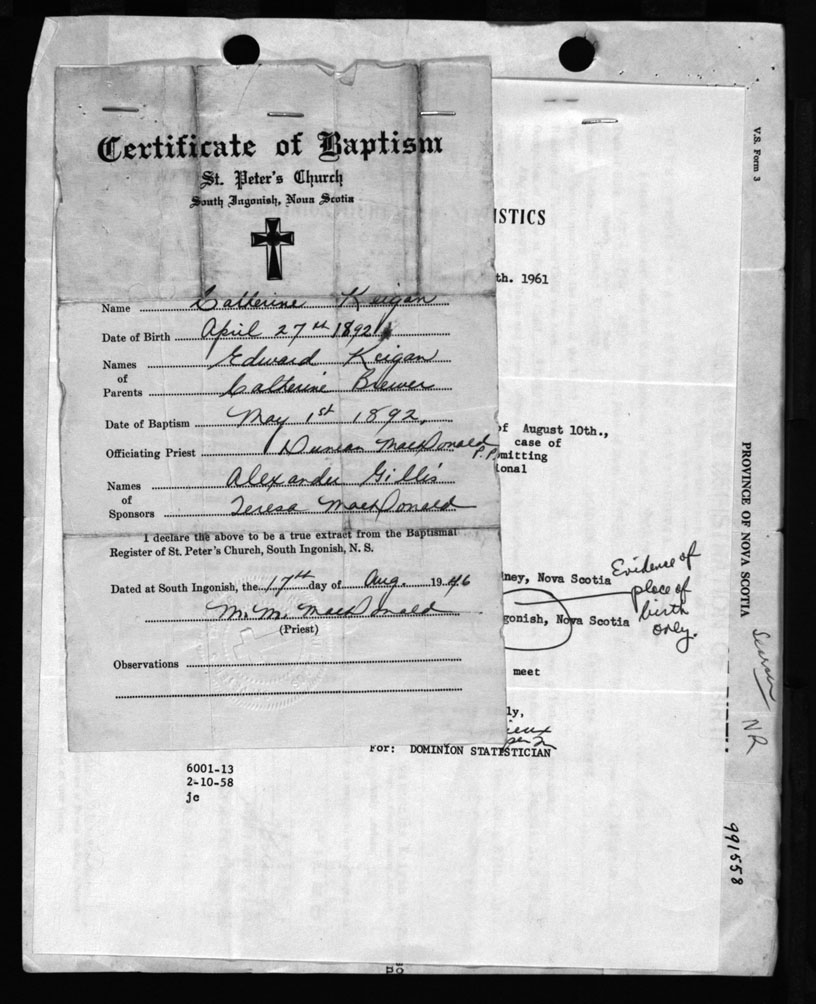 Certificate of Baptism
St. Peter's Church
South Ingonish, Nova Scotia
Name Catherine Keigan
Date of Birth April 27th 1892
Names Edward Keigan
of
Parents Catherine Brewer
Date of Baptism May 1st 1892,
Officiating Priest Duncan MacDonald P.P.
Names Alexander Gillis
of
Sponsors Teresa MacDonald
I declare the above to be a true extract from the Baptismal
Register of St. Peter's Church, South Ingonish, N. S.
Dated at South Ingonish, the 17th day of Aug. 1946
M. M. MacDonald
(Priest)
Observations
ISTICS
th. 1961
of August 10th.,
case of
mitting
ional
dney, Nova Scotia
gonish, Nova Scotia
Evidence of
place of
birth
only.
meet
ly,
For: DOMINION STATISTICIAN
6001-13
2-10-58
jc
V.S. Form 3
PROVINCE OF NOVA SCOTIA
NR
991558